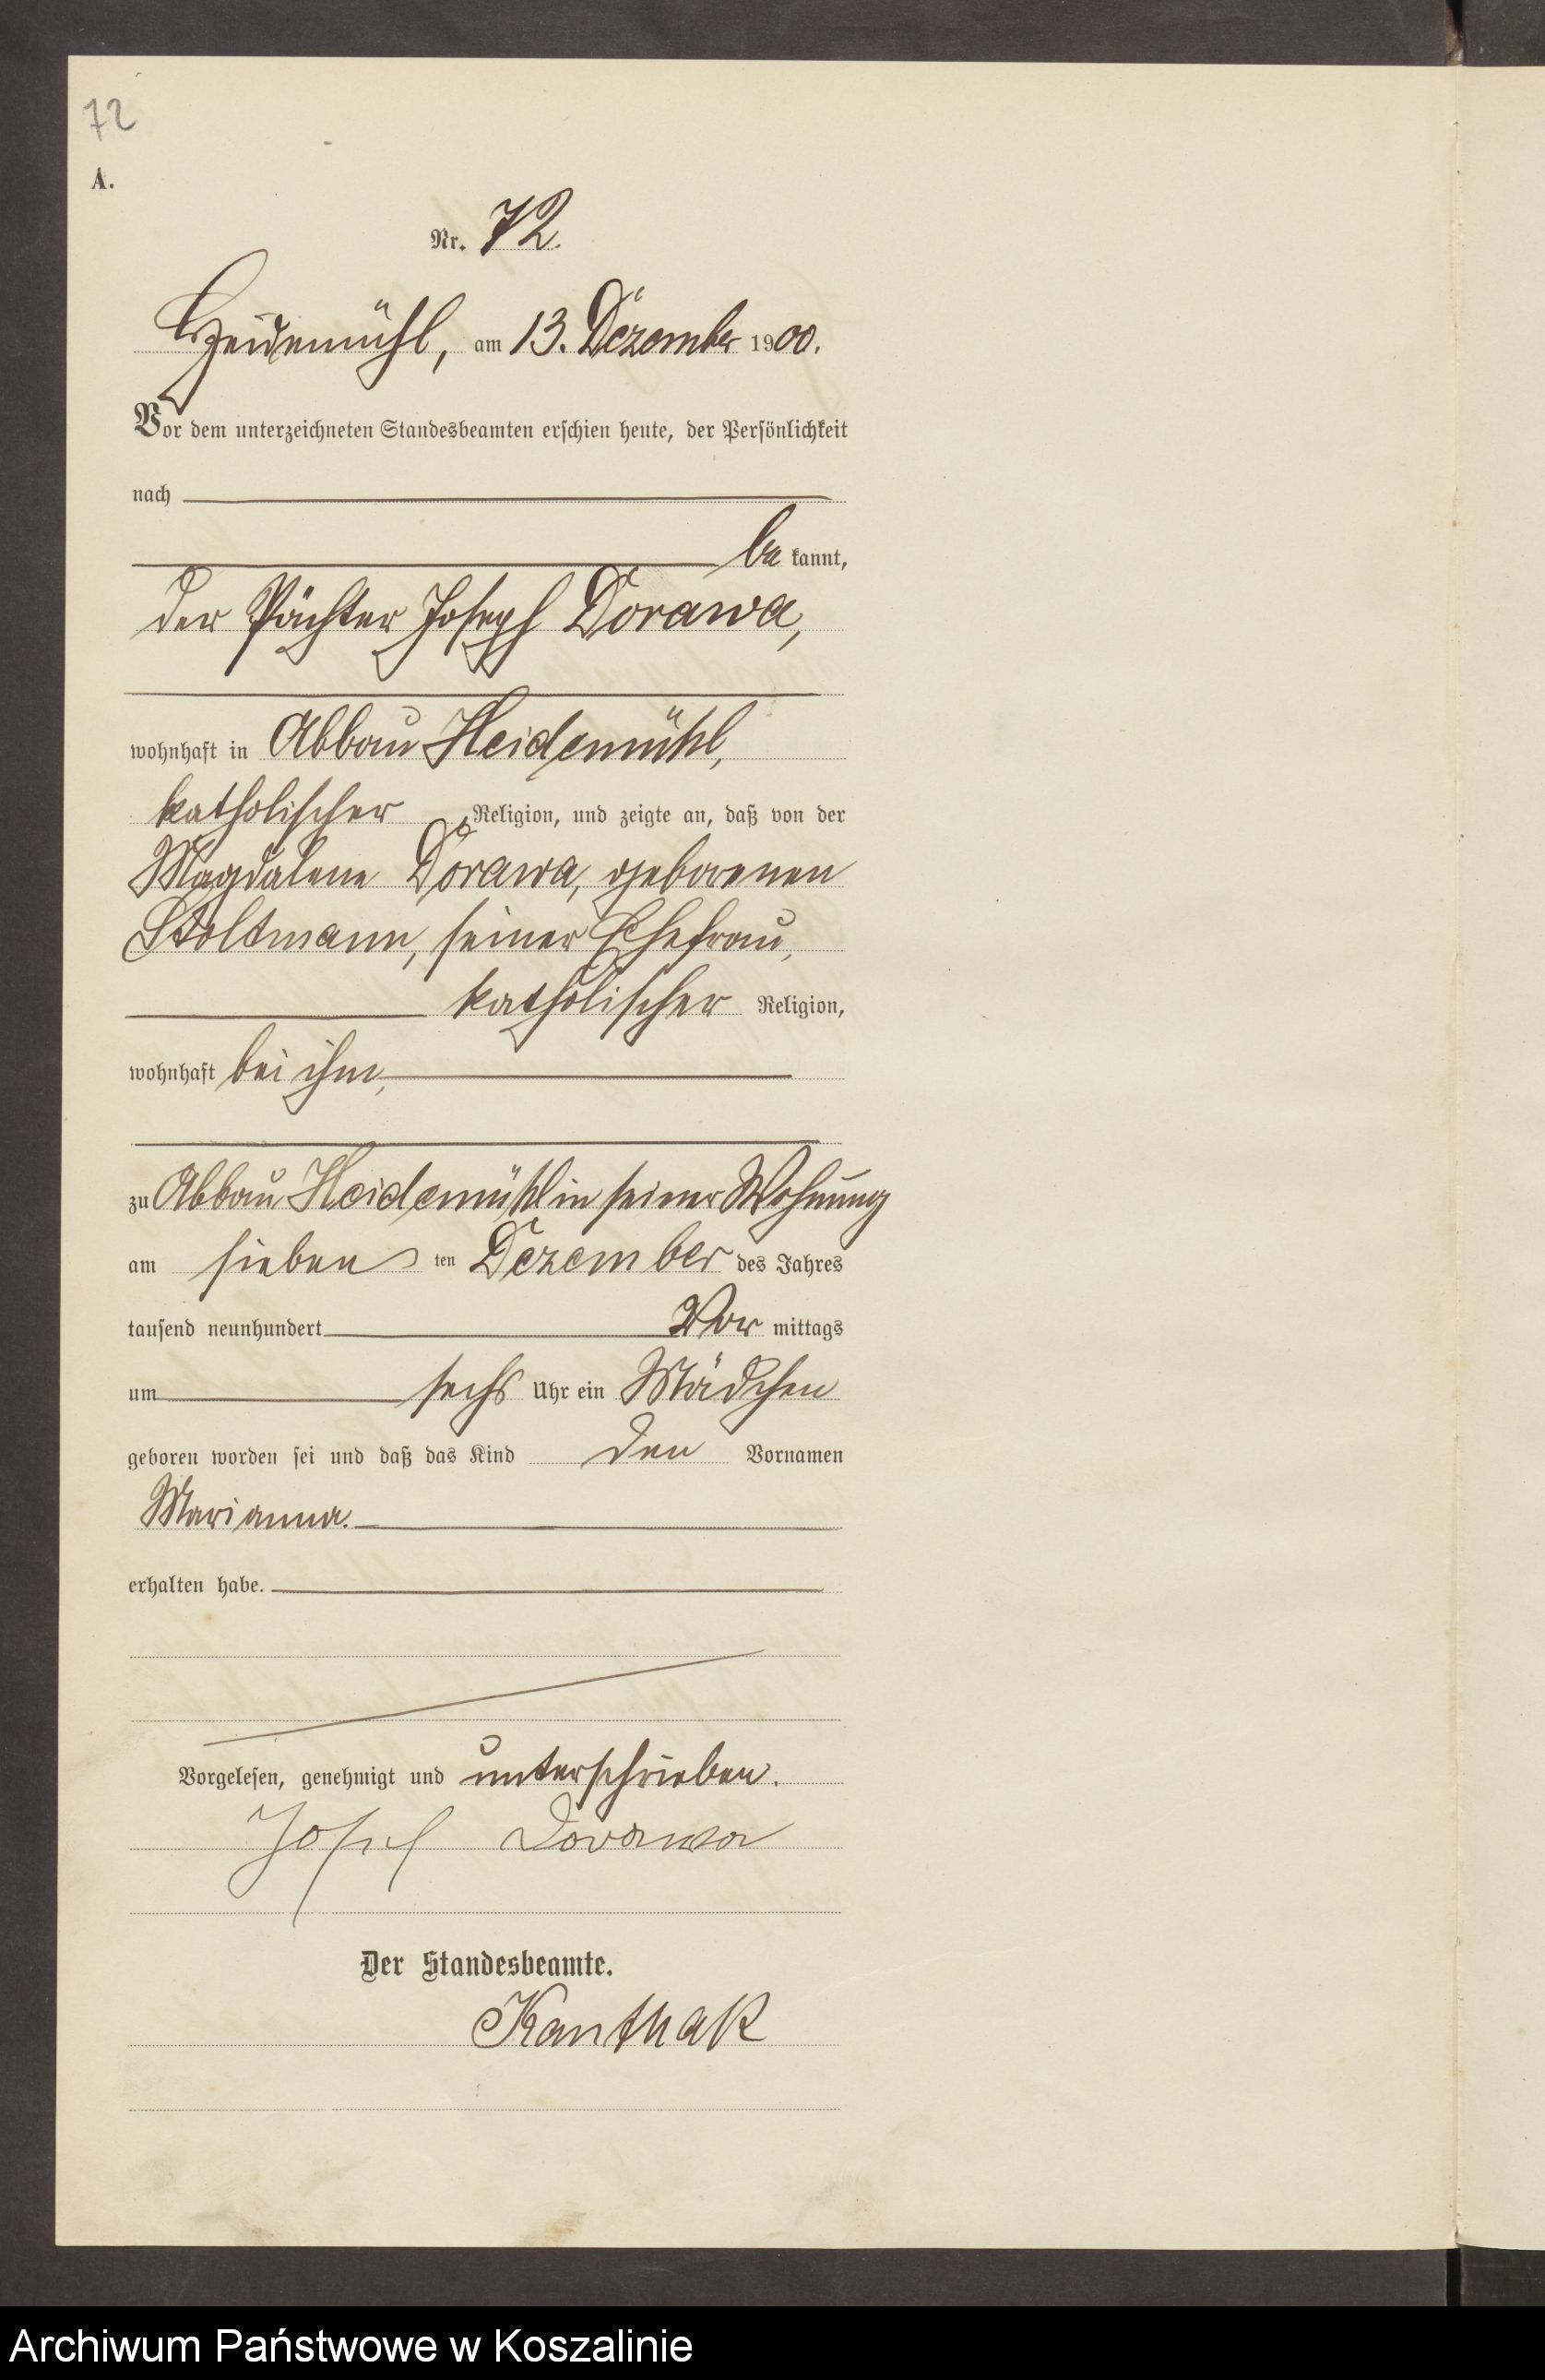 72
A.
Nr. 72.
Heidemühl, am 13. Dezember 1900.
Vor dem unterzeichneten Standesbeamten erschien heute, der Persönlichkeit
nach
be kannt,
der Pächter Joseph Dorawa,
wohnhaft in Abbau Heidemühl,
katholischer Religion, und zeigte an, daß von der
Magdalene Dorawa, geborenen
Stoltmann, seiner Ehefrau,
katholischer Religion,
wohnhaft bei ihm,
zu Abbau Heidemühl in seiner Wohnung
am sieben ten Dezember des Jahres
tausend neunhundert Vor mittags
um sechs Uhr ein Mädchen
geboren worden sei und daß das Kind den Vornamen
Marianna.
erhalten habe.
Vorgelesen, genehmigt und unterschrieben.
Josef Dorawa
Der Standesbeamte.
Kanthak
Archiwum Państwowe w Koszalinie